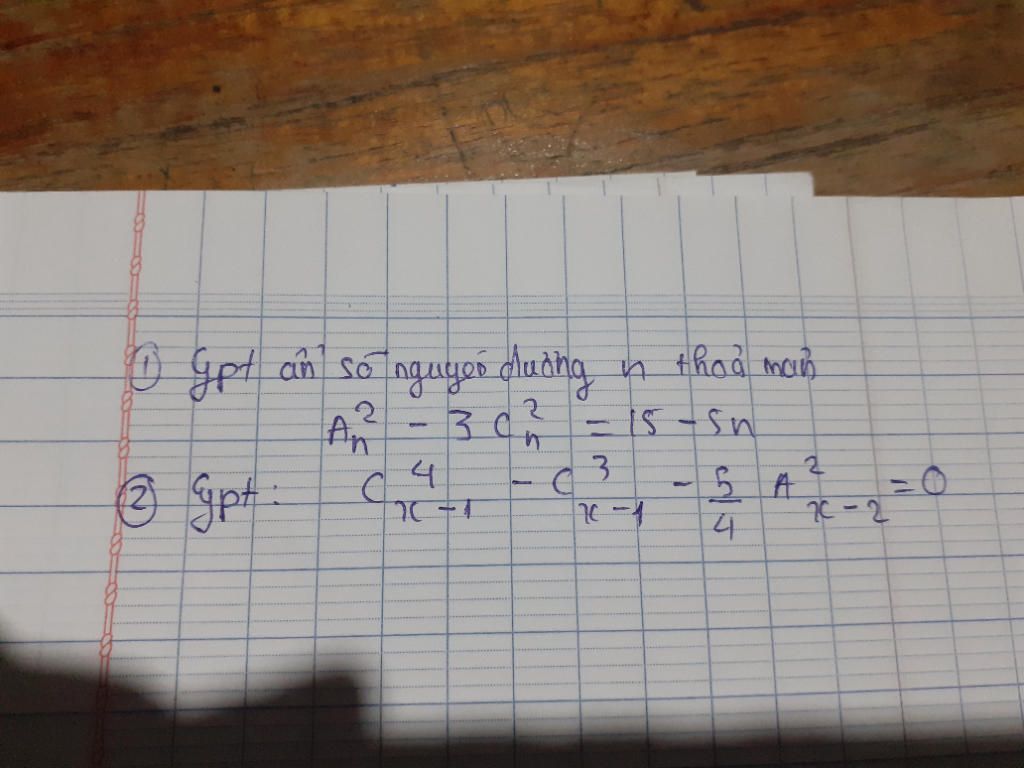 ① Gpt ẩn số nguyên dương n thoả mãn
A²ₙ - 3C²ₙ = 15 - 5n
② Gpt: C⁴ₓ₋₁ - C³ₓ₋₁ - 5/4 A²ₓ₋₂ = 0